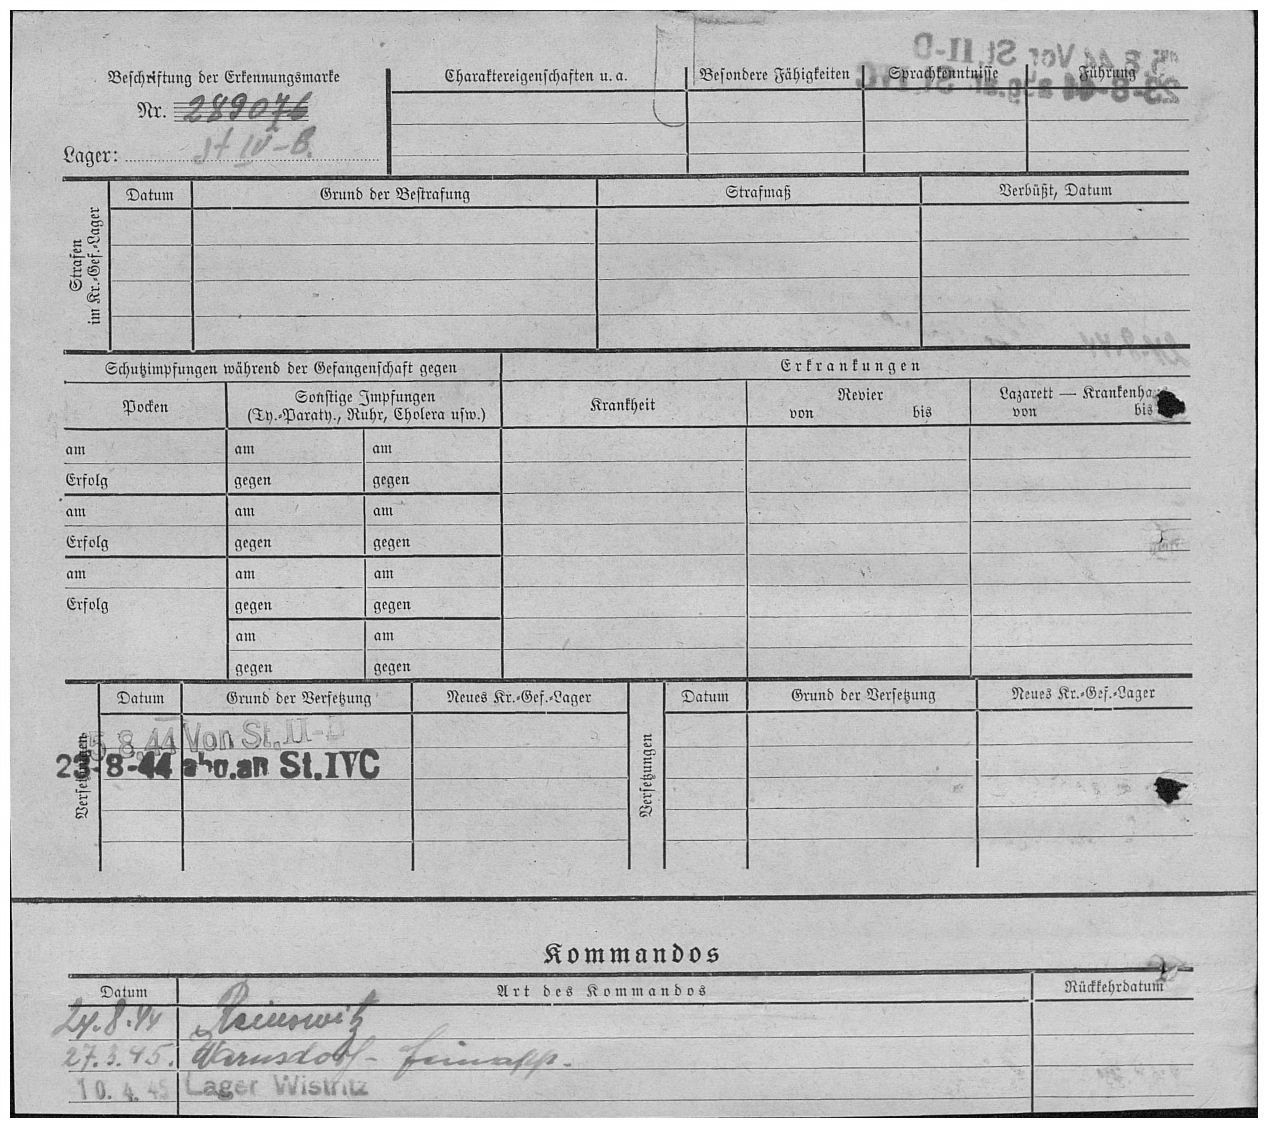 Beschriftung der Erkennungsmarke
Nr. 289076
Lager: St IV-B.
Charaktereigenschaften u. a.
Besondere Fähigkeiten
Sprachkenntnisse
Führung
Strafen
im Kr.-Gef.-Lager
Datum
Grund der Bestrafung
Strafmaß
Verbüßt, Datum
Schutzimpfungen während der Gefangenschaft gegen
Erkrankungen
Pocken
Sonstige Impfungen
(Ty.-Paraty., Ruhr, Cholera usw.)
Krankheit
Revier
von bis
Lazarett — Krankenha
von bis
am am am
Erfolg gegen gegen
am am am
Erfolg gegen gegen
am am am
Erfolg gegen gegen
am am
gegen gegen
Versetzungen
Datum
Grund der Versetzung
Neues Kr.-Gef.-Lager
Versetzungen
Datum
Grund der Versetzung
Neues Kr.-Gef.-Lager
5.8.44 Von St. II-D
23-8-44 abg.an St.IVC
Kommandos
Datum
Art des Kommandos
Rückkehrdatum
24.8.44
27.3.45. Warnsdorf-
10.4.45 Lager Wistritz